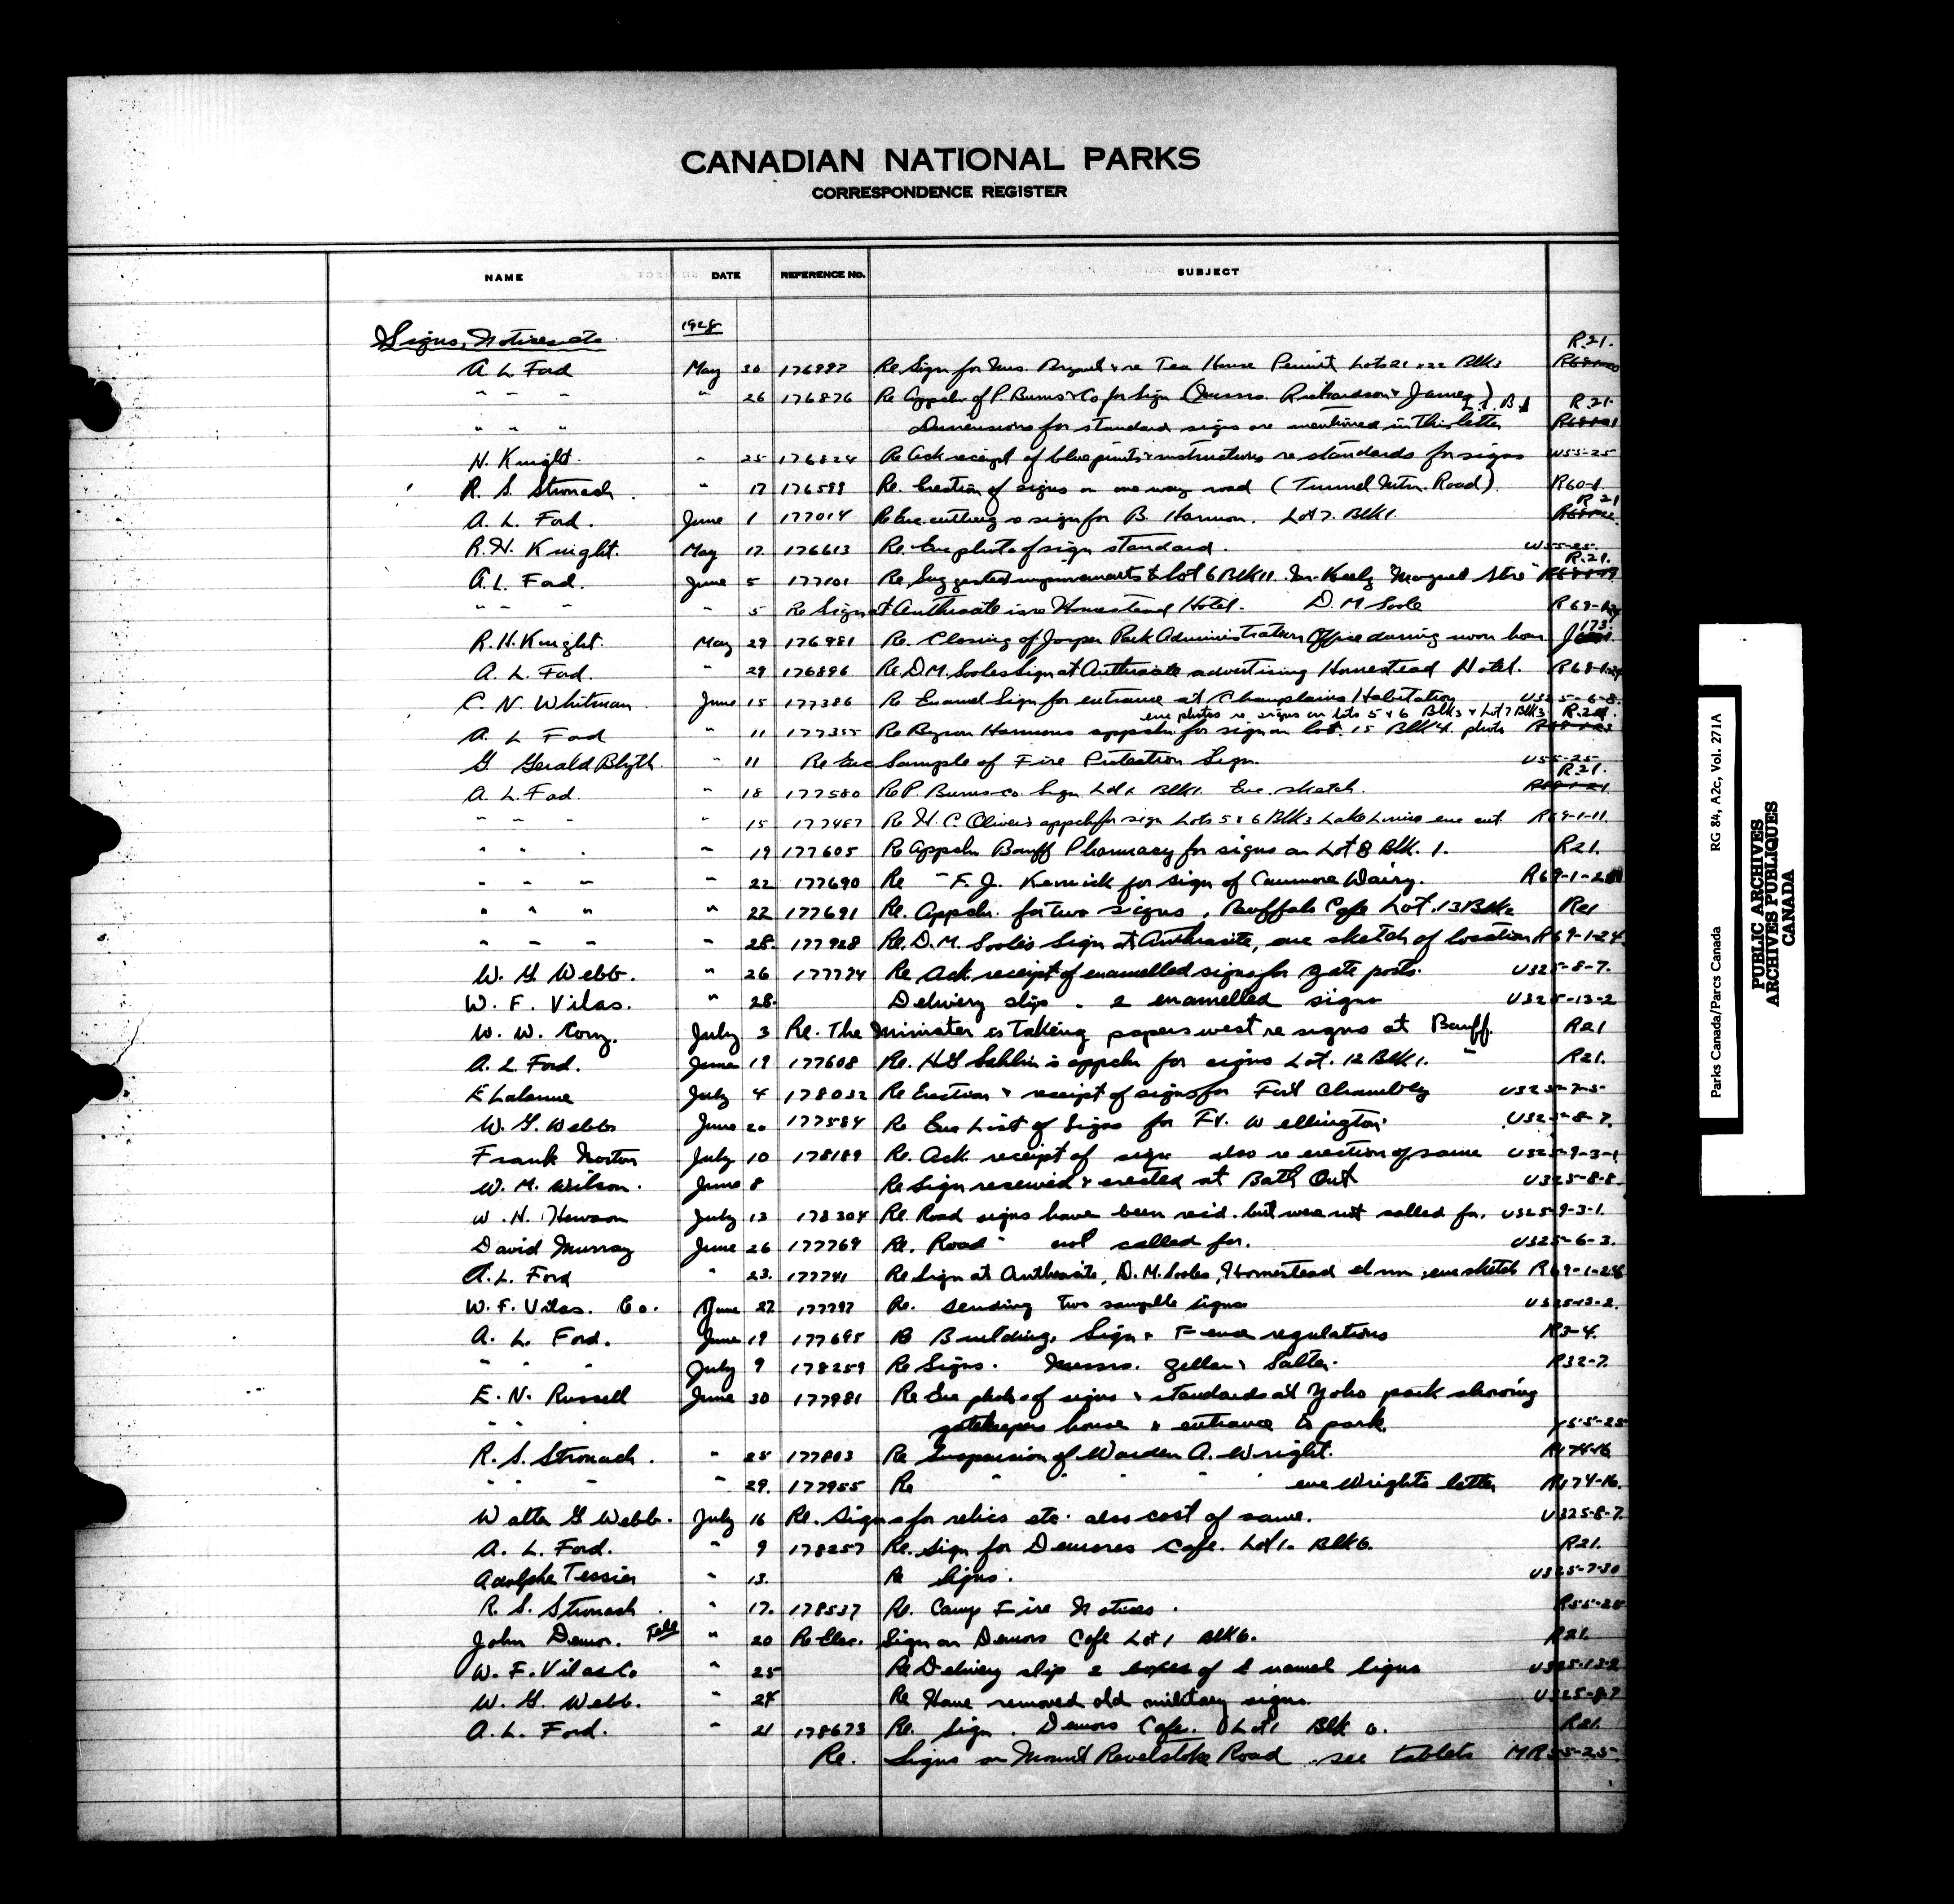 CANADIAN NATIONAL PARKS
CORRESPONDENCE REGISTER
NAME DATE REFERENCE NO. SUBJECT
Signs, Notices etc 1928
R.21.
A. L. Ford May 30 Re Sign for Mrs. Bryant & re Tea House Permit Lots 21 & 22 Blk 3
" " " " 26 176876 Re Appcln of P. Burns & Co for Sign (Messrs. Richardson & James) L.1. B1 R.21.
" " " Dimensions for standard signs are mentioned in this letter
H. Knight " 25 176824 Re Ack receipt of blueprints & instructions re standards for signs W55-25
R. S. Stronach " 17 176599 Re. Erection of signs on one way road (Tunnel Mtn. Road). R60-1.
R 21
A. L. Ford. June 1 177014 Re Enc. cutting & sign for B. Harmon. Lot 7. Blk 1
R. H. Knight. May 17 176613 Re. Enc photo of sign standard. W55-25.
R.21.
A. L. Ford. June 5 177101 Re. Suggested improvements to Lot 6 Blk 11.
" " " " 5 Re Sign at Anthracite is re Homestead Hotel. D. M Soole
R. H. Knight. May 29 176981 Re. Closing of Jasper Park Administration Office during noon hour
A. L. Ford. " 29 176896 Re. D.M. Sooles Sign at Anthracite advertising Homestead Hotel. R69-1-24
C. N. Whitman June 15 177386 Re Enamel Sign for entrance at Champlains Habitation U325-6-8.
enc photos re signs on lots 5 & 6 Blk 3 & Lot 7 Blk 3 R.21.
A. L Ford " 11 177355 Re Byron Harmons appcln for sign on lot. 15 Blk 4. photo
G Gerald Blyth. " 11 Re Enc Sample of Fire Protection Sign. U55-25-
R.21.
A. L. Ford. " 18 177580 Re P. Burns co. Sign Lot 1 Blk 1. Enc. sketch.
" " " " 15 177487 Re H. C. Olivers appcln for sign Lots 5 & 6 Blk 3 Lake Louise enc cut. R69-1-11.
" " " " 19 177605 Re Appcln Banff Pharmacy for signs on Lot 8 Blk. 1. R21.
" " " " 22 177690 Re " F. J. for sign of Canmore Dairy.
" " " " 22 177691 Re. Appcln. for two signs, Buffalo Cafe Lot. 13 Blk 2 R21
" " " " 28. 177928 Re. D. M. Soole's Sign at Anthracite, enc sketch of location R69-1-24
W. G. Webb. " 26 177774 Re Ack. receipt of enamelled signs for gate posts. U325-8-7.
W. F. Vilas. " 28. Delivery slip. 2 enamelled signs U325-13-2
W. W. Cory. July 3 Re. The Minister is taking papers west re signs at Banff. R21
A. L. Ford. June 19 177608 Re. H G Sahlin's appcln for signs Lot. 12 Blk 1. R21.
E Lalanne July 4 178032 Re Erection & receipt of signs for Fort Chambly U325-7-5-
W. G. Webb June 20 177584 Re Enc List of Signs for Ft. Wellington U325-8-7.
Frank Norton July 10 178189 Re. Ack. receipt of sign also re erection of same U325-9-3-1
W. M. Wilson. June 8 Re Sign received & erected at Bath Ont U325-8-8
W. H. Hewson July 13 178304 Re. Road signs have been recd. but were not called for. U325-9-3-1.
David Murray June 26 177769 Re. Road " not called for. U325-6-3.
A. L. Ford " 23. 177741 Re Sign at Anthracite, D.M. Sooles, Homestead enc sketch R69-1-24
W. F. Vilas. Co. June 27 177797 Re. Sending two sample signs U325-13-2.
A. L. Ford. June 19 177695 Re Building, Sign & Fence regulations R3-4.
" " " July 9 178259 Re Signs. Messrs. Zeller & Salter. R32-7.
E. N. Russell June 30 177981 Re Enc photo of signs & standards at Yoho park showing
" " " gatekeepers house & entrance to park. Y55-25
R. S. Stronach. " 25 177803 Re Suspension of Warden A. Wright. R174-16
" " " " 29. 177955 Re " " " " enc Wrights letter R174-16.
Walter G Webb. July 16 Re. Signs for relics etc. also cost of same. U325-8-7
A. L. Ford. " 9 178257 Re. Sign for Demores Cafe. Lot 1. Blk 6. R21.
Adolphe Tessier " 13. Re Signs. U325-7-30
R. S. Stronach " 17. 178537 Re. Camp Fire Notices. R55-25
John Demor. " 20 Re Elec. Sign on Demors Cafe Lot 1 Blk 6. R21.
W. F. Vilas Co " 25 Re Delivery slip 2 boxes of Enamel Signs U325-13-2
W. G. Webb. " 24 Re Have removed old military signs. U325-8-7
A. L. Ford. " 21 178673 Re. Sign. Demors Cafe. Lot 1 Blk 6. R21.
Re. Signs on Mount Revelstoke Road see tablets MR55-25-
Parks Canada/Parcs Canada RG 84, A2c, Vol. 271A
PUBLIC ARCHIVES
ARCHIVES PUBLIQUES
CANADA